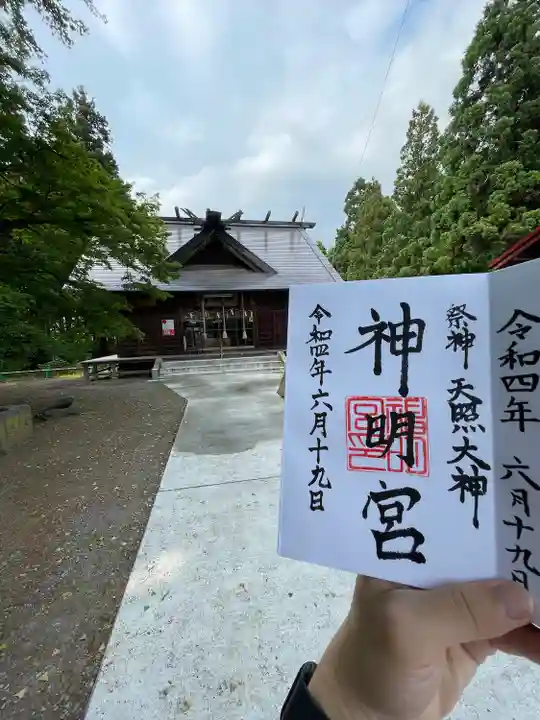 令和四年 六月十九日
祭神 天照大神
神明宮
令和四年六月十九日